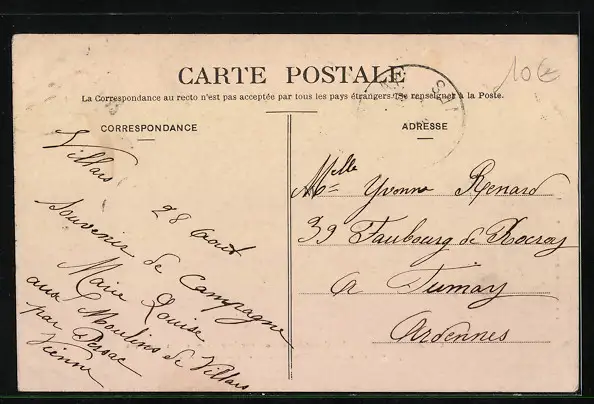 CARTE POSTALE
La Correspondance au recto n'est pas acceptée par tous les pays étrangers. (Se renseigner à la Poste.
CORRESPONDANCE
ADRESSE
10 €
Villars
28 Aout
Souvenir de Campagne
Marie Louise
aux Moulins de Villars
par Persac
Vienne
Melle Yvonne Renard
39 Faubourg de Rocroy
a Fumay
Ardennes